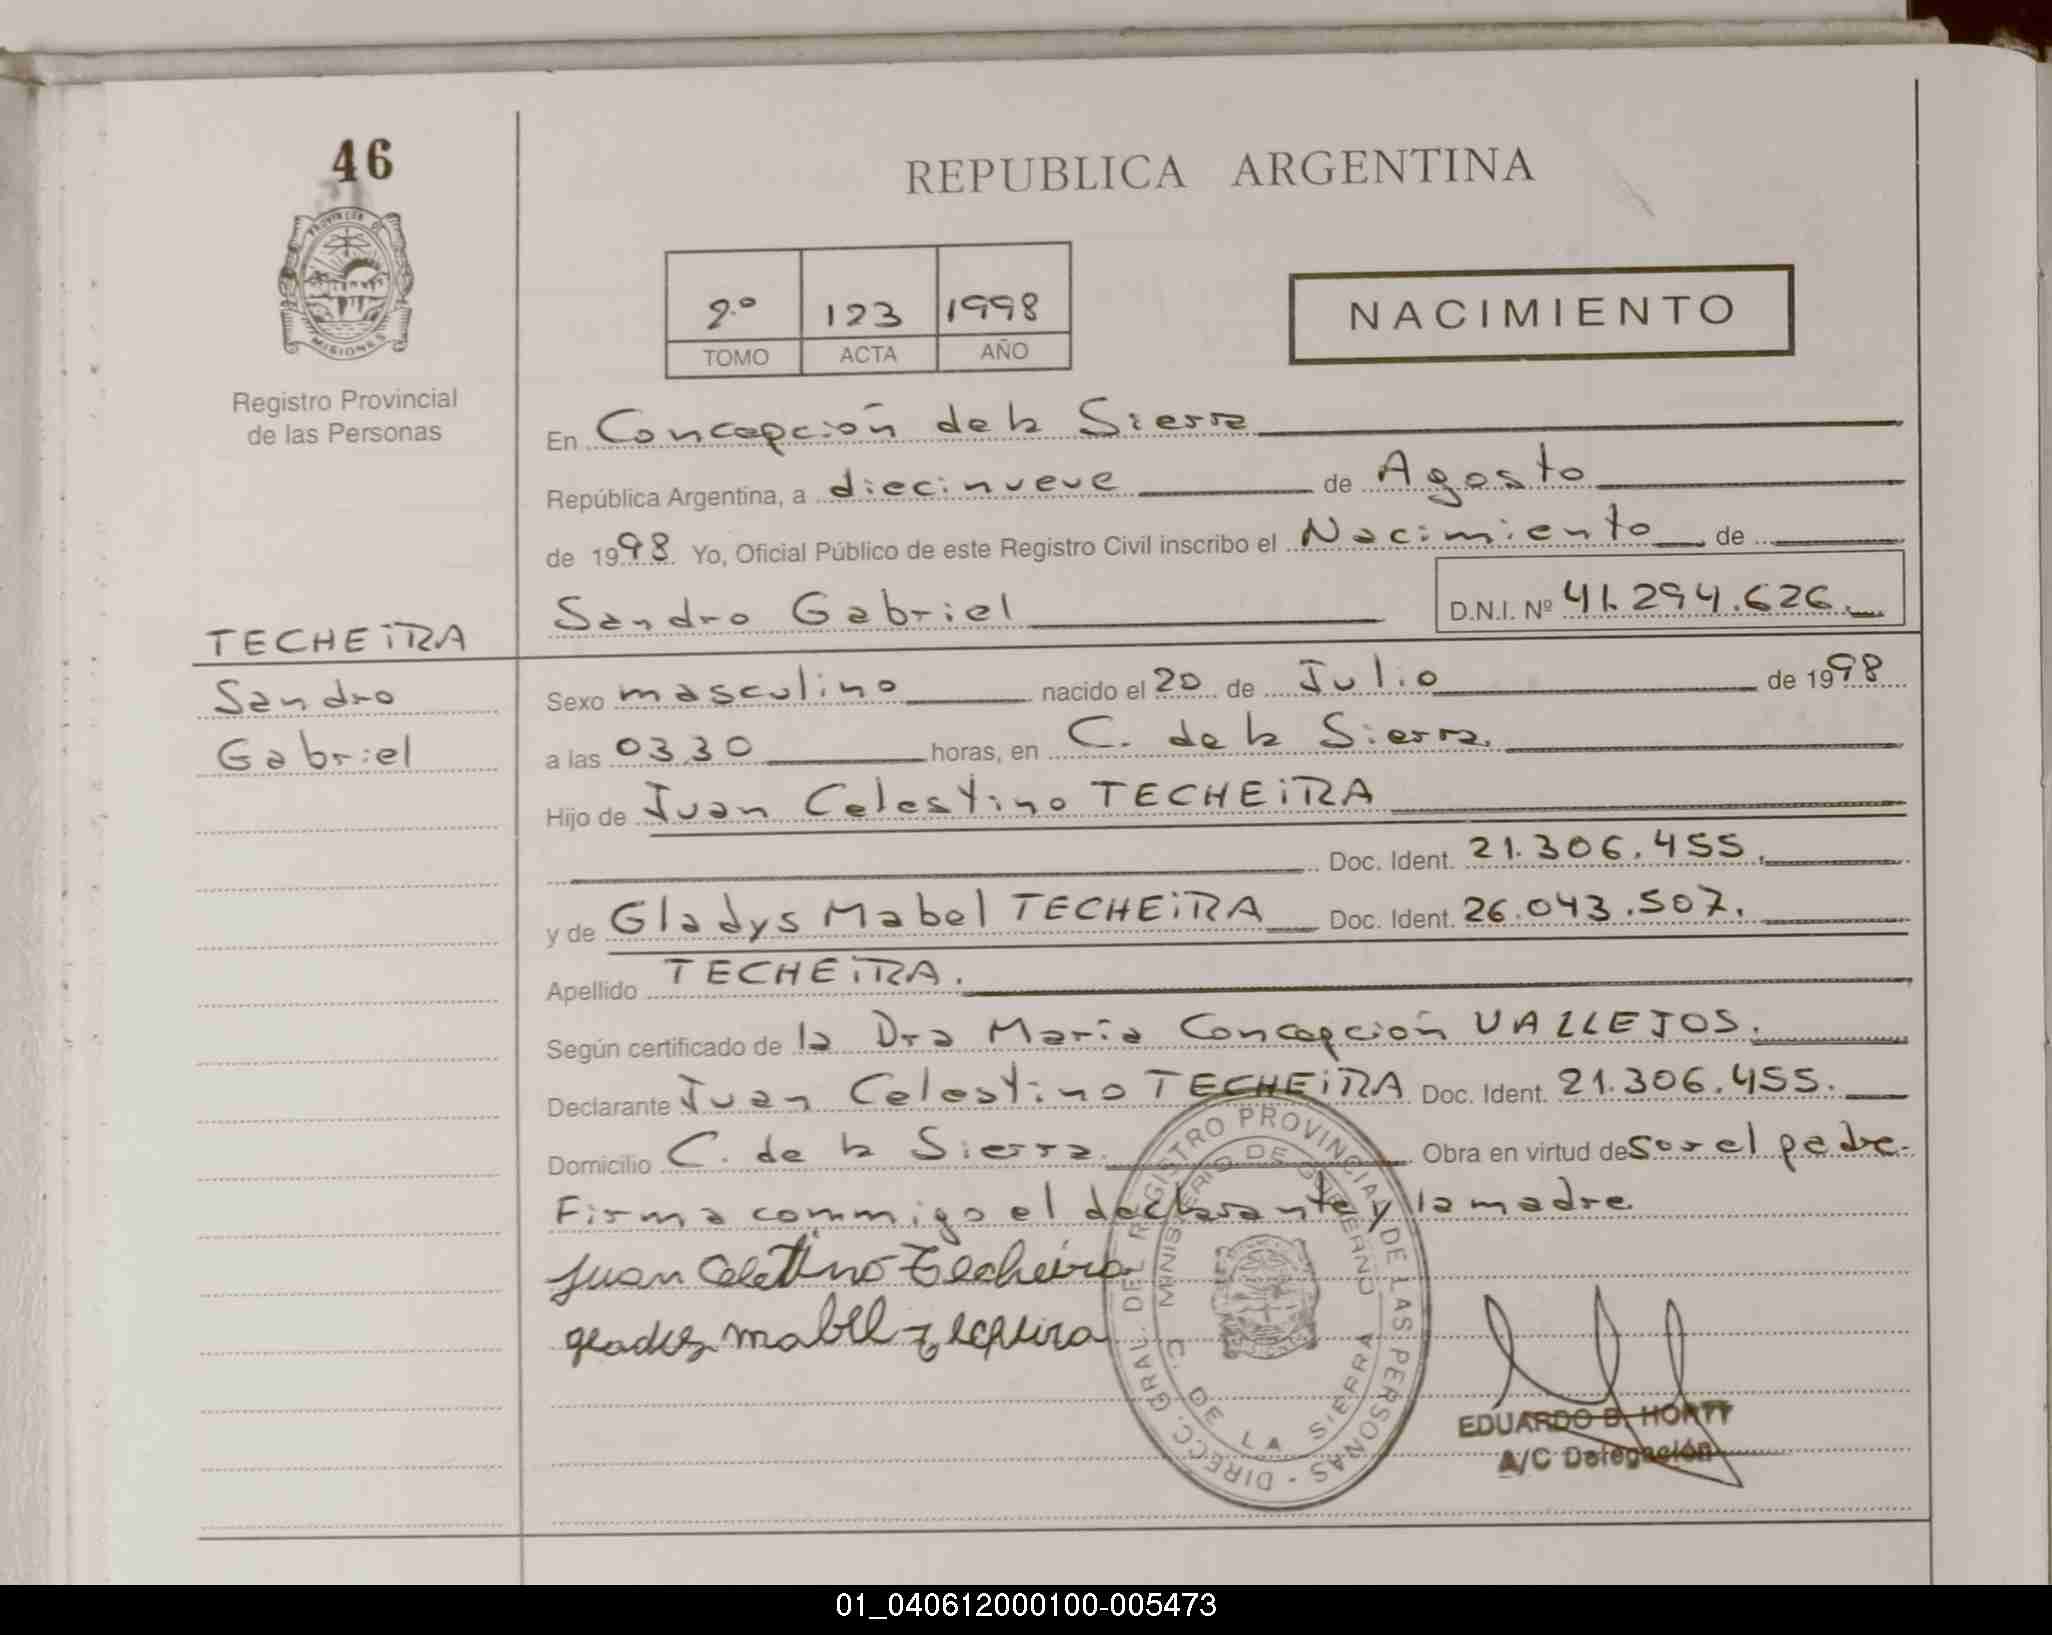 46
PROVINCIA DE
MISIONES
Registro Provincial
de las Personas
TECHEiRA
Sandro
Gabriel
REPUBLICA ARGENTINA
2º 123 1998
TOMO ACTA AÑO
NACIMIENTO
En Concepción de la Sierra
República Argentina, a diecinueve de Agosto
de 1998 Yo, Oficial Público de este Registro Civil inscribo el Nacimiento de
Sandro Gabriel D.N.I. Nº 41.294.626.
Sexo masculino nacido el 20 de Julio de 1998
a las 03,30 horas, en C. de la Sierra.
Hijo de Juan Celestino TECHEiRA
Doc. Ident. 21.306.455.
y de Gladys Mabel TECHEiRA Doc. Ident. 26.043.507.
Apellido TECHEiRA.
Según certificado de la Dra María Concepción VALLEJOS.
Declarante Juan Celestino TECHEiRA Doc. Ident. 21.306.455.
Domicilio C. de la Sierra. Obra en virtud de ser el padre.
Firma commigo el declarante y la madre
Juan Celetino Techeira
gladis mabel
DIRECC. GRAL. DEL REGISTRO PROVINCIAL DE LAS PERSONAS -
MINISTERIO DE GOBIERNO
C. DE LA SIERRA
EDUARDO D. HORTT
A/C Delegación
01_040612000100-005473